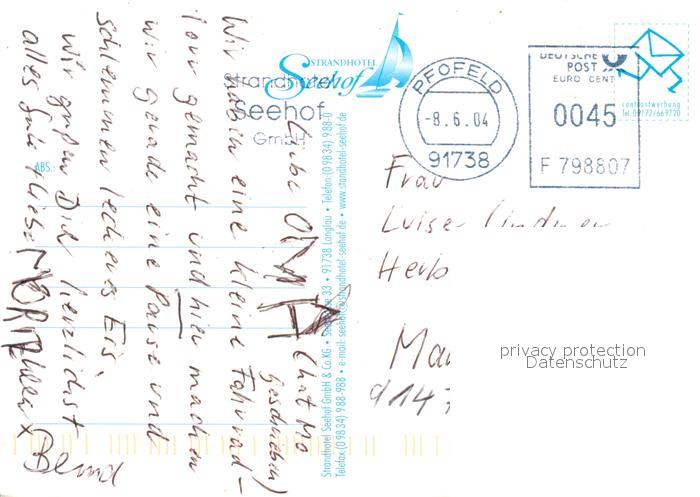 Liebe OMA
(hat Mo
geschrieben)
Wir haben eine kleine Fahrrad-
tour gemacht und hier machen
wir gerade eine Pause und
schlemmen leckeres Eis.
Wir grüßen Dich herzlichst
alles Gute + liebe
MORITZ
Bernd
STRANDHOTEL
Seehof
Strandhotel
Seehof
GmbH
ABS.:
Strandhotel Seehof GmbH & Co.KG • Seestraße 33 • 91738 Langlau • Telefon (09834) 988-0
Telefax (09834) 988-988 • e-mail: seehof@strandhotel-seehof.de • www.strandhotel-seehof.de
PFOFELD
-8.6.04
91738
DEUTSCHE
POST
EURO CENT
0045
F 798807
contrastwerbung
Tel. 09172/669720
Frau
Luise
privacy protection
Datenschutz